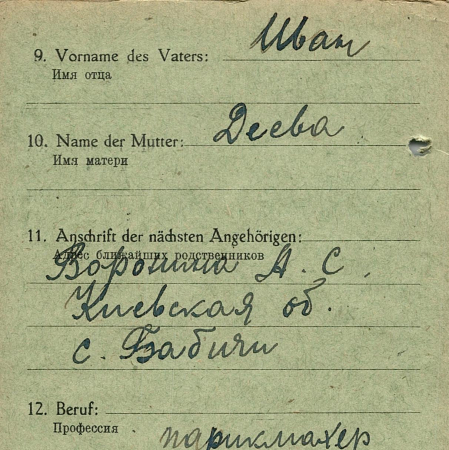 Иван
9. Vorname des Vaters:
Имя отца
Деева
10. Name der Mutter:
Имя матери
11. Anschrift der nächsten Angehörigen:
Адрес ближайших родственников
Воронина А. С.
Киевская об.
с. Бабичи
12. Beruf:
Профессия
парикмахер